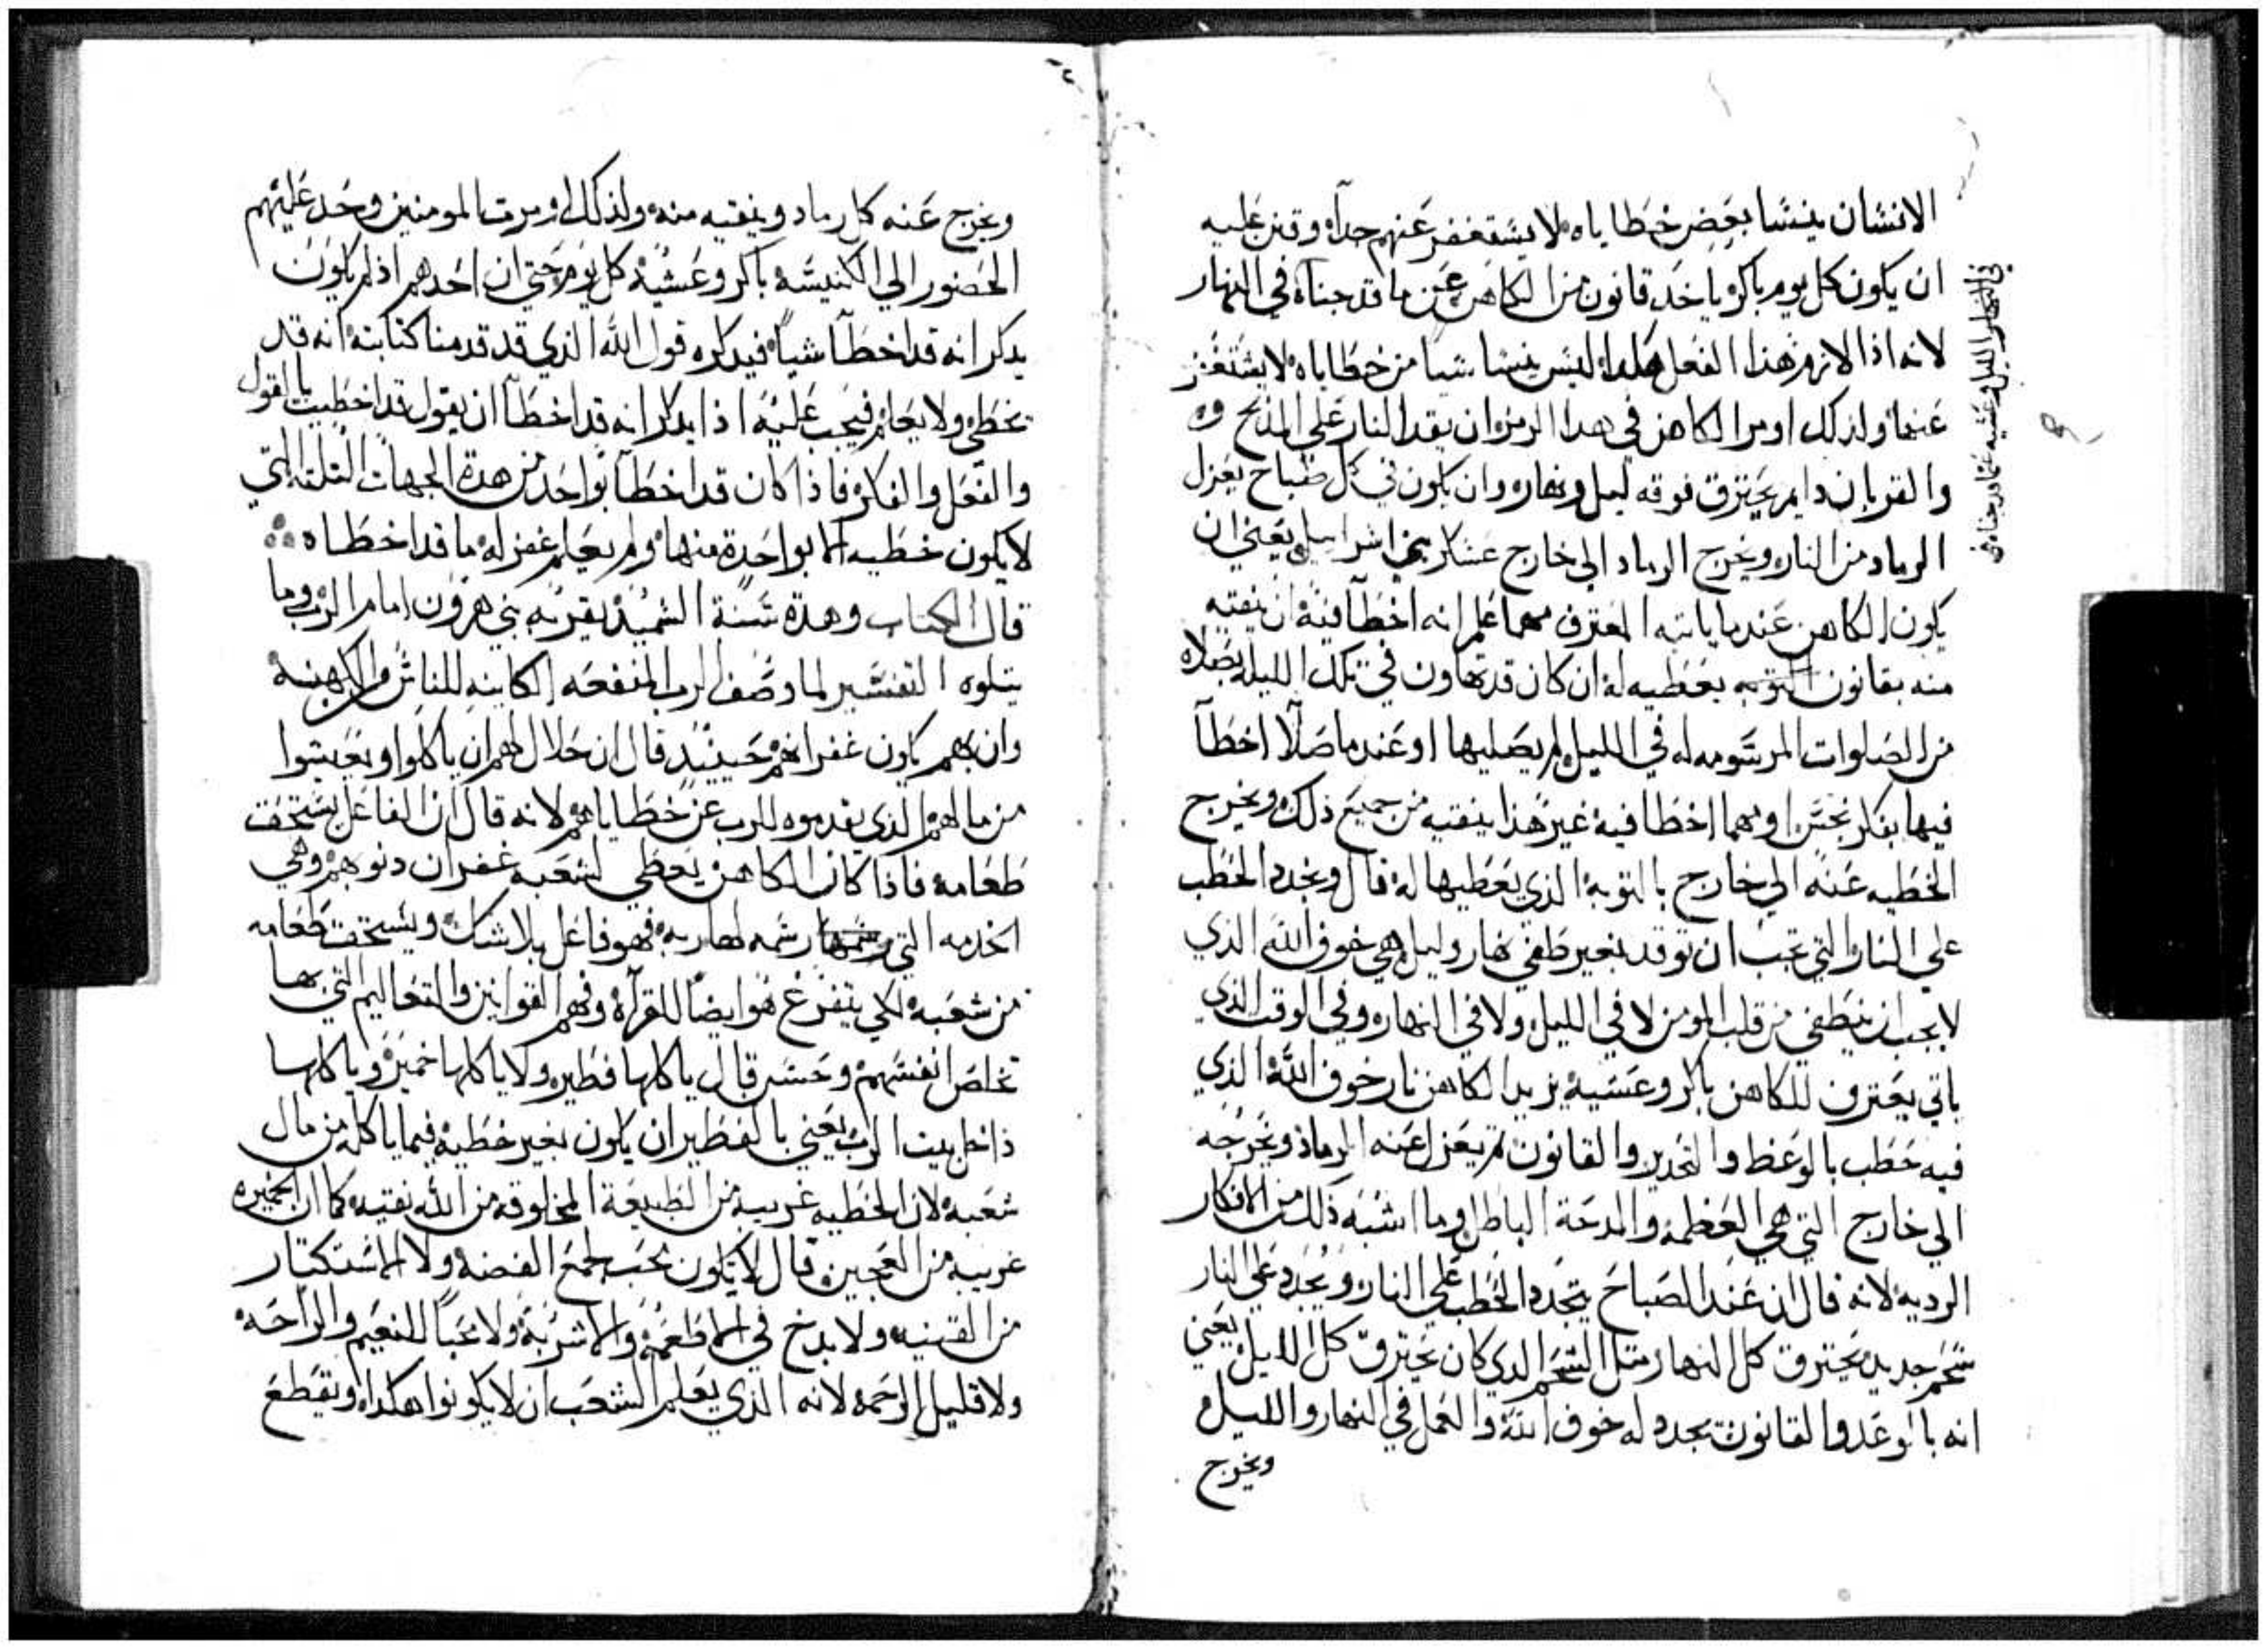 الانسان ينسا بعض خطاياه لا يستغفر عنهم جدآ وقنن عليه
ان يكون كل يوم باكر ياخد قانون من الكاهن عن ما قد جناه في النهار
لانه اذا الازم هذا الفعل هكدا ليس ينسا شيا من خطاياه لا يستغفر
عنها ولذلك اومر الكاهن في هدا الرمز ان يقد النار على المذبح
والقربان دايم يحترق فوقه ليل ونهار وان يكون في كل صباح يعزل
الرماد من النار ويخرج الرماد الي خارج عسكر بني اسراييل يعني ان
يكون الكاهن عندما ياتيه المعترف مهما علم انه اخطآ فيه ان ينقيه
منه بقانون التوبه يعطيه له ان كان قد تهاون في تلك الليله بصلاه
من الصلوات المرسومه له في الليل لم يصليها او عندما صلا اخطآ
فيها بفكر نجس او مهما اخطا فيه غير هذا ينقيه من جميع ذلك ويخرج
الخطيه عنه الي خارج بالتوبه الذي يعطيها له قال ويجدد الحطب
علي النار التي تجب ان توقد بغير طفي نهار وليل هي خوف الله الذي
لا يجب ان ينطفي من قلب المومن لا في الليل ولا في النهار وفي الوقت الذي
ياتي يعترف للكاهن باكر وعشيه يزيد الكاهن نار خوف الله الذي
فيه حطب بالوعظ والتحدير والقانون ثم يعزل عنه الرماد ويخرجه
الي خارج التي هي العظمه والمدحة الباطل وما اشبه ذلك من الافكار
الرديه لانه قال ان عند الصباح يتجدد الحطب علي النار ويجدد علي النار
شحم جديد يحترق كل النهار متل الشحم الدي كان يحترق كل الليل يعني
انه بالوعد والقانون يجدد له خوف الله والعمل في النهار والليل
ويخرج
في النهار الليل وعشيه عما قد جناه في
ويخرج عنه كل رماد وينقيه منه ولذلك اومرت المومنين وحد عليهم
الحضور الي الكنيسه باكر وعشيه كل يوم حتي ان احدهم اذ لم يكون
يدكر انه قد اخطآ شيآ فيدكره قول الله الذي قد قدمنا كتابته انه قد
تخطي ولا يعلم فيجب عليه اذا يدكر انه قد اخطآ ان يقول قد اخطيت بالقول
والفعل والفكر فاذا كان قد اخطآ بواحد من هدة الجهات التلته التي
لا يكون خطيه الا بواحدة منها ولم يعلم غفر له ما قد اخطاه
قال الكتاب وهدة سنة السميد يقربه بني هرون امام الرب وما
يتلوه التفسير لما وصف الرب المنفعه الكاينه للناس والكهنة
وان بهم يكون غفرانهم حينيد قال ان حلال لهم ان ياكلوا ويعيشوا
من مالهم الذي يقدموه للرب عن خطاياهم لانه قال ان الفاعل يستحق
طعامه فاذا كان الكاهن يعطي لشعبه غفران دنوبهم وفي
الخدمه التي رسمه لها ربه فهو فاعل بلا شك ويستحق طعامه
من شعبه لكي يتفرغ هو ايضآ للقرآه وفهم القوانين والتعاليم التي بها
تخلص انفسهم وحسن قال ياكلها فطير ولا ياكلها خمير وياكلها
داخل بيت الرب يعني بالفطير ان يكون بغير خطيه فيما ياكله من مال
شعبه لان الخطيه غريبه من الطبيعة المخلوقه من الله نقيه كما ان الخميره
غريبه من العجين وقال لا يكون يحب لجمع الفضه ولا الاستكتار
من القنيه ولا بدخ في الاطعمه والاشربه ولا محبآ للنعيم والراحه
ولا قليل الرحمه لانه الذي يعلم الشعب ان لا يكونوا هكدا ويقطع